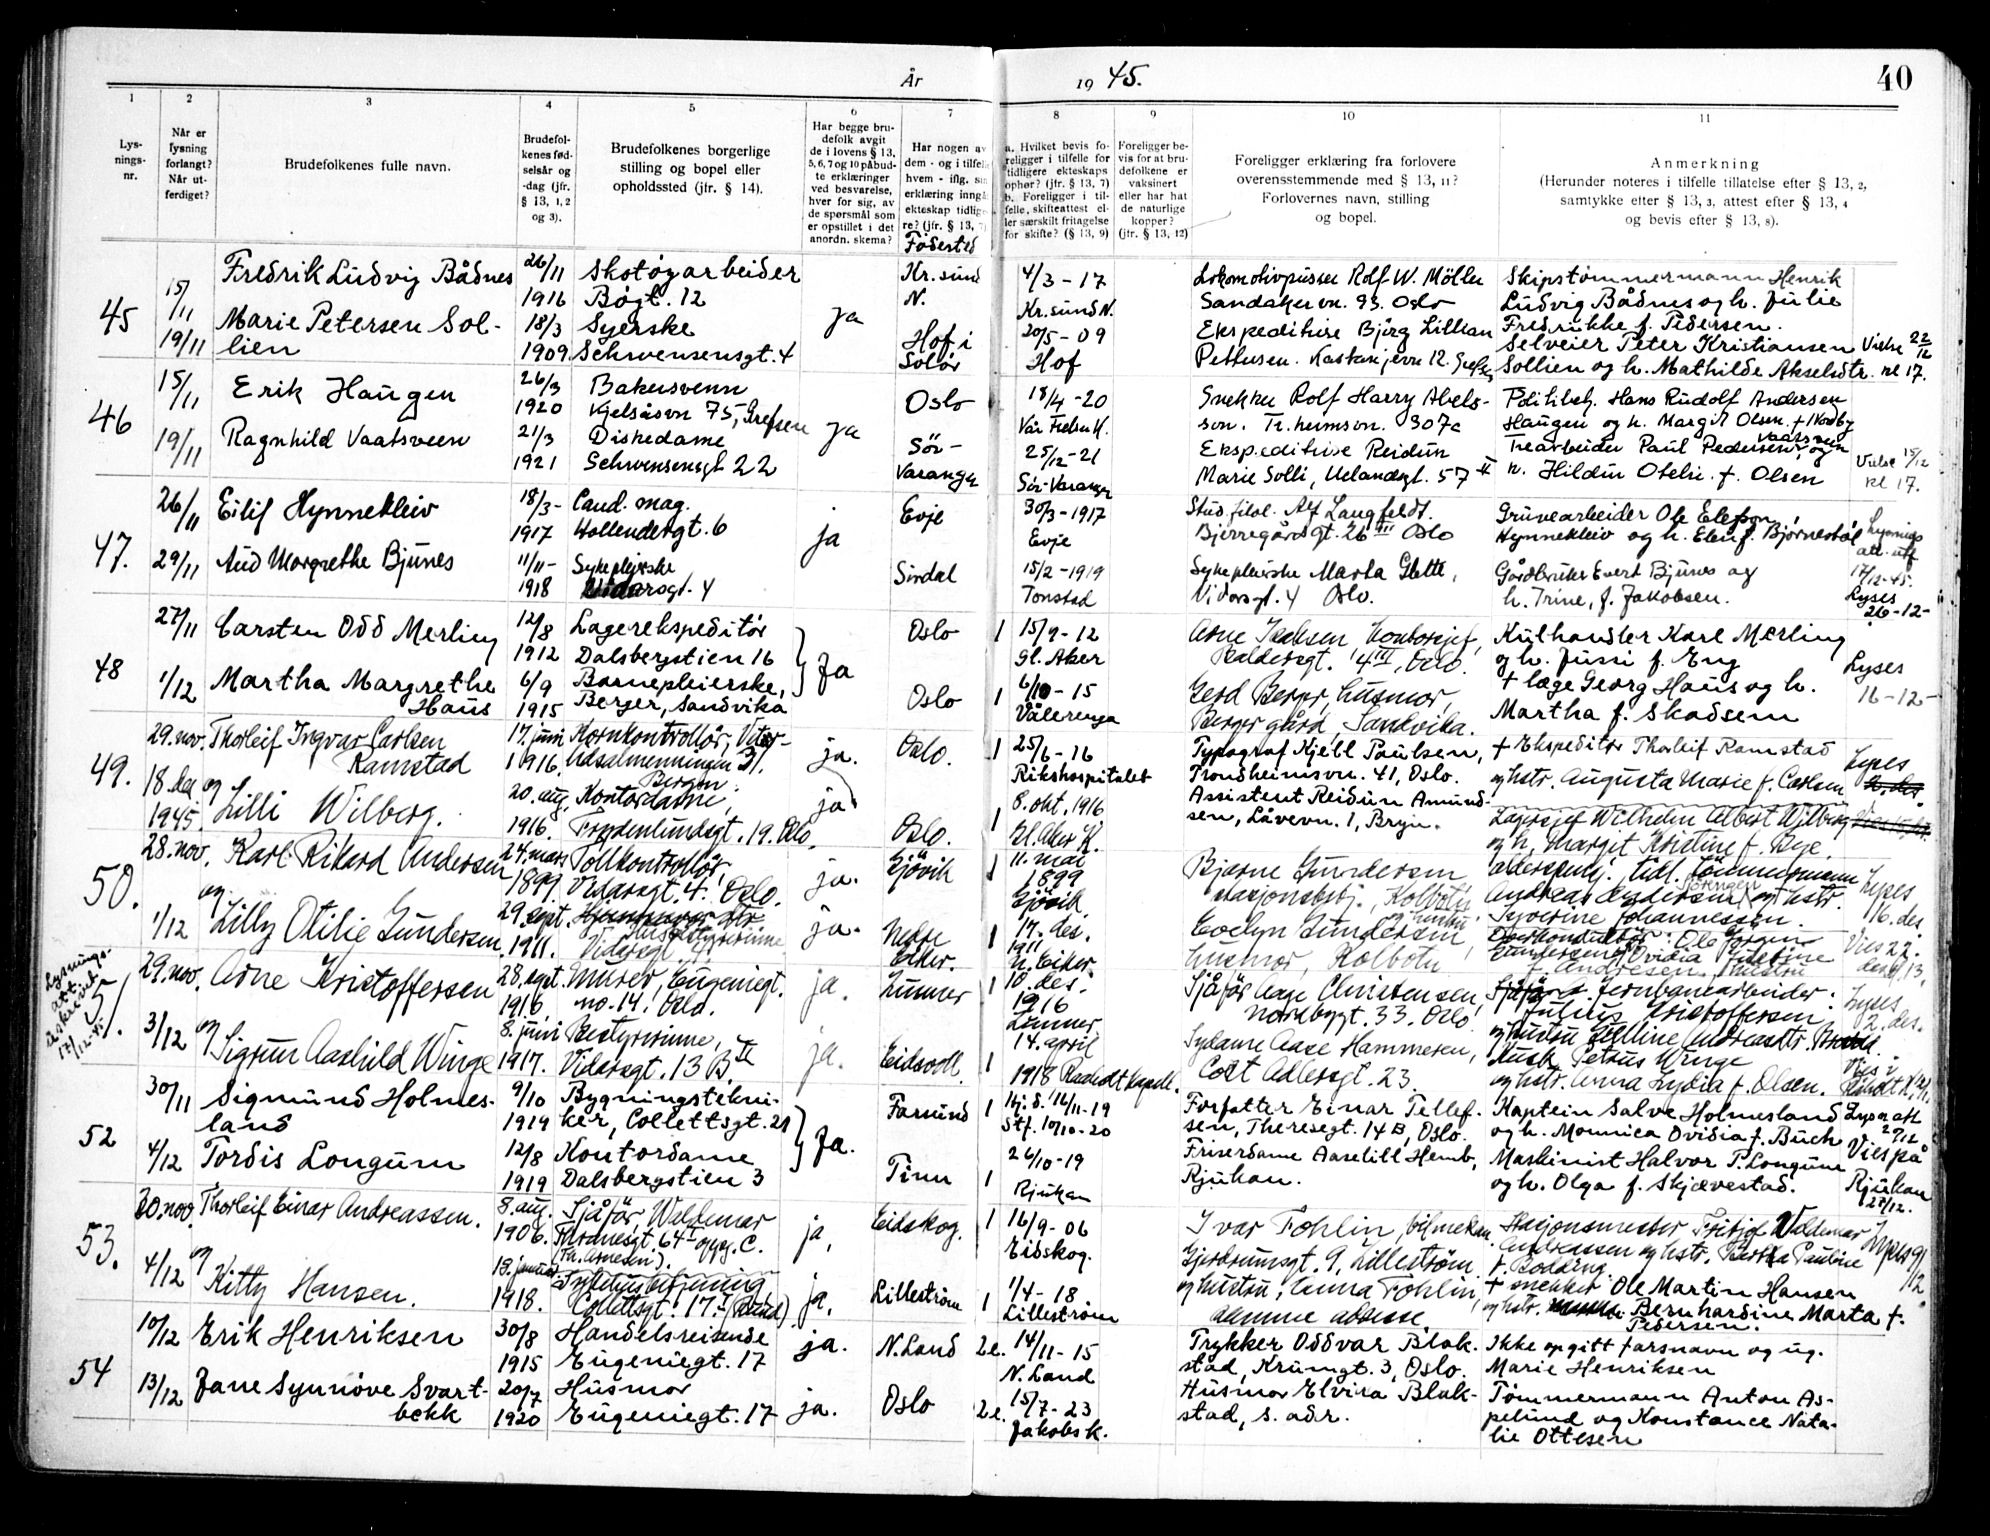 År 1945. 40
1 2 3 4 5 6 7 8 9 10 11
Lys-
nings-
nr.
Når er
lysning
forlangt?
Når ut-
ferdiget?
Brudefolkenes fulle navn.
Brudefol-
kenes fød-
selsår og
-dag (jfr.
§ 13, 1, 2
og 3).
Brudefolkenes borgerlige
stilling og bopel eller
opholdssted (jfr. § 14).
Har begge bru-
defolk avgit
de i lovens § 13,
5, 6, 7 og 10 påbud-
te erklæringer
ved besvarelse,
hver for sig, av
de spørsmål som
er opstillet i det
anordn. skema?
Har nogen av
dem - og i tilfelle
hvem - iflg. sin
erklæring inngå
ekteskap tidlige
re? (jfr. § 13, 7)
Fødested
a. Hvilket bevis fo-
religger i tilfelle for
tidligere ekteskaps
ophør? (jfr. § 13, 7)
b. Foreligger i til-
felle, skifteattest el-
ler særskilt fritagelse
for skifte? (§ 13, 9)
Foreligger be-
vis for at bru-
defolkene er
vaksinert
eller har hat
de naturlige
kopper?
(jfr. § 13, 12)
Foreligger erklæring fra forlovere
overensstemmende med § 13, 11?
Forlovernes navn, stilling
og bopel.
Anmerkning
(Herunder noteres i tilfelle tillatelse efter § 13, 2,
samtykke efter § 13, 3, attest efter § 13, 4
og bevis efter § 13, 8).
45
15/11
19/11
Fredrik Ludvig Bådnes
Marie Petersen Sol-
lien
26/11
1916
18/3
1909
Skotøyarbeider
Bøgt. 12
Syerske
Schwensensgt. 4
ja
Kr.sund
N.
Hof i
Solør
4/3 - 17
Kr.sund N.
20/5 - 09
Hof
Lokomotivpusser Rolf W. Möller
Sandakervn. 93. Oslo
Ekspeditrise Bjørg Lillian
Pettersen.
Skipstømmermann Henrik
Ludvig Bådnes og h. Julie
Fredrikke f. Pedersen.
Selveier Peter Kristiansen
Sollien og h. Mathilde Akselsdtr.
Vielse 22/12
kl 17.
46
15/11
19/11
Erik Haugen
Ragnhild Vaatsveen
26/3
1920
21/3
1921
Bakersvenn
Kjelsåsvn 75, Grefsen
Diskedame
Schwensensgt 22
ja
Oslo
Sør-
Varanger
18/4 - 20
Vår Frelsers K.
25/12 - 21
Sør-Varanger
Snekker Rolf Harry Abels-
son. Tr.heimsvn. 307c
Ekspeditrise Reidun
Marie Solli, Uelandsgt. 57 II
Politibetj. Hans Rudolf Andersen
Haugen og h. Margit Olsen. f. Nordby
Trearbeider Paul Pedersen Vaatsveen og
h. Hildur Otelie f. Olsen
Vielse 15/12
kl 17.
47.
26/11
29/11
Eilif Hynnekleiv
Aud Margrethe Bjunes
18/3 -
1917
11/11 -
1918
Cand. mag.
Hollendergt. 6
Sykepleierske
Vidarsgt. 4
ja
Evje
Sirdal
30/3 - 1917
Evje
15/2 - 1919
Tonstad
Stud. filol. Alf Langfeldt.
Bjerregårdsgt. 26 III Oslo
Sykepleierske Marta Glette,
Vidarsgt. 4 Oslo.
Gruvearbeider Ole Elefsen
Hynnekleiv og h. Elen f. Bjørnestøl
Gårdbruker Evert Bjunes og
h. Trine, f. Jakobsen.
Lysnings
att. utf
17/12-45.
Lyses
26-12-
48
27/11
1/12
Carsten Odd Merling
Martha Margrethe
Haus
12/8
1912
6/9
1915
Lagerekspeditør
Dalsbergstien 16
Barnepleierske,
Berger, Sandvika
Ja
Oslo
Oslo
1 15/9 - 12
Gl. Aker
1 6/10 - 15
Vålerenga
Arne Isaksen, kontorsjef,
Baldersgt. 14 III, Oslo.
Gerd Berger, husmor,
Berger gård, Sandvika.
Kulhandler Karl Merling
og h. Jussi f. Eng
+ læge Georg Haus og h.
Martha f. Skadsem
Lyses
16-12-
49.
29. nov.
18 des
1945.
Thorleif Ingvar Carlsen
Ramstad
og
Lilli Wilberg.
17. juni
1916.
20. aug.
1916.
Kornkontrollør,
Udsalmenningen 31.
Bergen.
Kontordame,
Frydenlundsgt. 19. Oslo.
ja.
ja
Oslo.
Oslo.
1 25/6 - 16
Rikshospitalet
8. okt. 1916
1 Gl. Aker K.
Typograf Kjell Paulsen,
Trondheimsvn. 41, Oslo.
Assistent Reidun Amund-
sen, Låvevn. 1, Bryn.
+ Ekspeditør Thorleif Ramstad
og hstr. Augusta Marie f. Carlsen
Lagersjef Wilhelm Albert Wilberg
og h. Margit Kristine f. Bye.
Lyses
50.
28. nov.
1/12
Karl Rikard Andersen
og
Lilly Otilie Gundersen
24. mars
1899.
29. sept.
1911.
Tollkontrollør,
Vidarsgt. 4. Oslo.
Vidarsgt. 4.
ja.
ja.
Gjøvik
Nedre
Eiker.
1 11. mai
1899
Gjøvik.
14. des.
1 1911
N. Eiker.
Bjarne Gundersen
stasjonsbetj., Kolbotn
og hustru
Evelyn Gundersen
husmor, Kolbotn
alderspensj. tidl. tømmermann
Andreas Andersen og hstr.
Syverine Johannessen.
Overkonduktør: Ole Jörgen
Gundersen og Ovidia Josefine
f. Andresen, hustru
Lyses
16. des.
Vies 22.
des. kl 13.
Lysnings-
att.
utskrevet
17/12-45
51.
29. nov.
3/12
Arne Kristoffersen
og
Sigrun Aashild Winge
28. sept.
1916.
8. juni
1917.
Murer, Eugeniegt.
no. 14. Oslo.
Bestyrerinne,
Vidarsgt. 13 B II
ja.
ja.
Lunner
Eidsvoll.
1 10. des.
1916
Lunner
14. april
1 1918 Raaholt kapell.
Sjåfør Aage Christensen,
Nordbygt. 33. Oslo
Sydame Aase Hammeren,
Cort Adlersgt. 23.
Jernbanearbeider:
Julius Kristoffersen
og hustru Selline Andreasdtr.
Petrus Winge
og hstr. Anna Lydia f. Olsen.
Lyses
2. des.
Vies i
52
30/11
4/12
Sigmund Holmes-
land
Tordis Longum
9/10
1919
12/8
1919
Bygningstekni-
ker, Collettsgt. 21
Kontordame
Dalsbergstien 3
Ja.
Farsund
Tinn
1 Hj.d. 16/11-19
Stf. 10/10-20
26/10-19
1 Rjukan
Forfatter Einar Tellef-
sen, Theresegt. 14 B, Oslo.
Friserdame Aaselill Hemb,
Rjukan.
Kaptein Salve Holmesland
og h. Monnica Ovidia f. Buch
Maskinist Halvor P. Longum
og h. Olga f. Skjævestad.
Vies på
Rjukan
27/12.
53.
30. nov.
4/12
Thorleif Einar Andreassen.
og
Kitty Hansen.
8. aug.
1906.
19. januar
1918.
Sjåfør, Waldemar
Thranesgt. 64 I oppg. C.
(Th. Arnesen).
Collettsgt. 17.
ja,
ja,
Eidskog.
Lillestrøm
1 16/9 - 06
Eidskog.
1/4 - 18
1 Lillestrøm
Ivar Fohlin, bilmekan.
Gjerdrumsgt. 9, Lillestrøm
og hustru, Anna Fohlin,
samme adresse.
Stasjonsmester Fritjof Valdemar
Andreassen og hstr. Bertha Pauline
f. Bodding
+ snekker Ole Martin Hansen
og hstr. Bernhardine Marta f.
Pedersen.
Lyses 9/12.
54
10/12
13/12
Erik Henriksen
Jane Synnøve Svart-
bekk
30/8
1915
20/7
1920
Handelsreisende
Eugeniegt. 17
Husmor
Eugeniegt. 17
ja.
ja.
N. Land
Oslo
2e. 14/11 - 15
N. Land
2e. 15/7 - 23
Jakobs k.
Trykker Oddvar Blak-
stad, Krumgt. 3, Oslo.
Husmor Elvira Blak-
stad, s. adr.
Ikke opgitt farsnavn og ug.
Marie Henriksen
Tømmermann Anton As-
pelund og Konstance Nata-
lie Ottesen